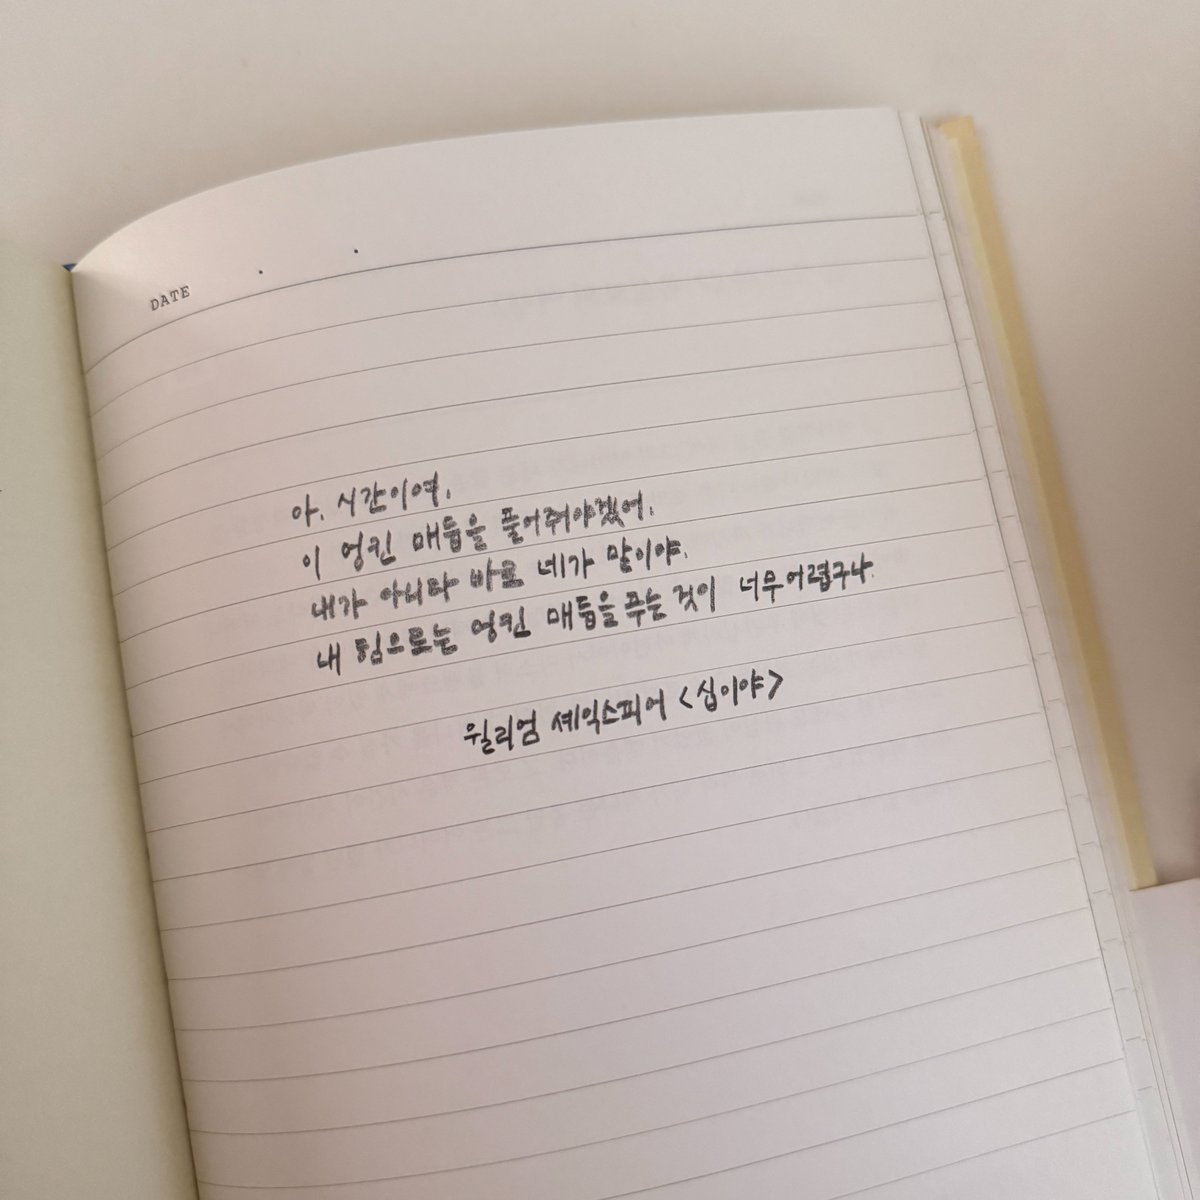 DATE
아, 시간이여,
이 엉킨 매듭을 풀어줘야겠어,
내가 아니라 바로 네가 말이야.
내 힘으로는 엉킨 매듭을 푸는 것이 너무 어렵구나.
윌리엄 셰익스피어 <십이야>